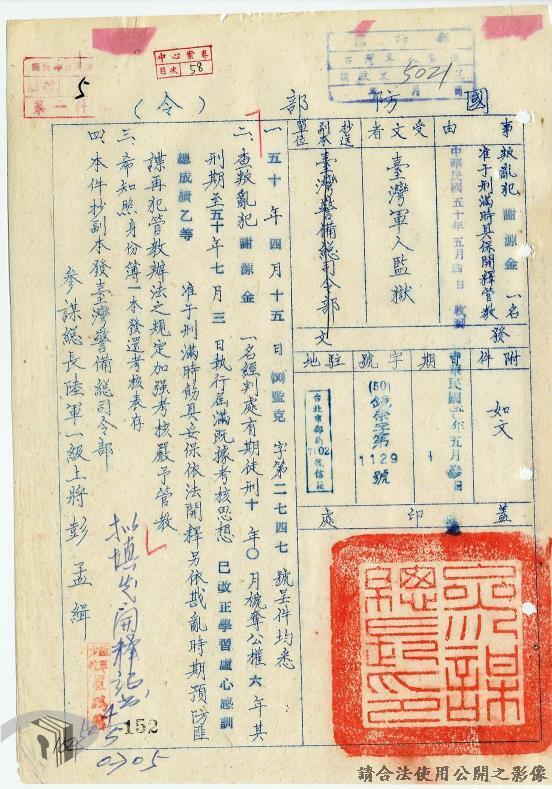 中心案卷
目次 58
5
第一件
5021
國防部（令）
事由
叛亂犯 謝源金 一名
准予刑滿時具保開釋管教
受文者
臺灣軍人監獄
中華民國五十年五月四日 收到
抄送副本單位
臺灣警備總司令部
發文
附件
如文
日期
中華民國五十年五月參日
字號
(50)
1129
號
駐地
台北市郵局
7102
號信箱
蓋印處
參謀總長印
一、五十年四月十五日(50)監克字第二七四七號呈件均悉
二、查叛亂犯 謝源金 一名經判處有期徒刑十年〇月褫奪公權六年其
刑期至五十年七月三日執行屆滿既據考核思想已改正學習虛心感訓
總成績乙等 准予刑滿時飭具妥保依法開釋另依戡亂時期預防匪
諜再犯管教辦法之規定加強考核嚴予管教
三、希知照身份簿一本發還考核表存
四、本件抄副本發臺灣警備總司令部
參謀總長陸軍一級上將 彭孟緝
擬填發開釋證書
152
0705
請合法使用公開之影像